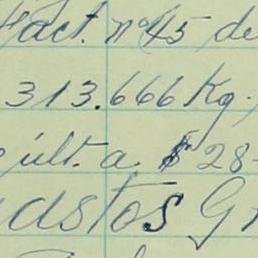 Fact. nº 45 de
313.666 Kg.
últ. a $ 28
astos G